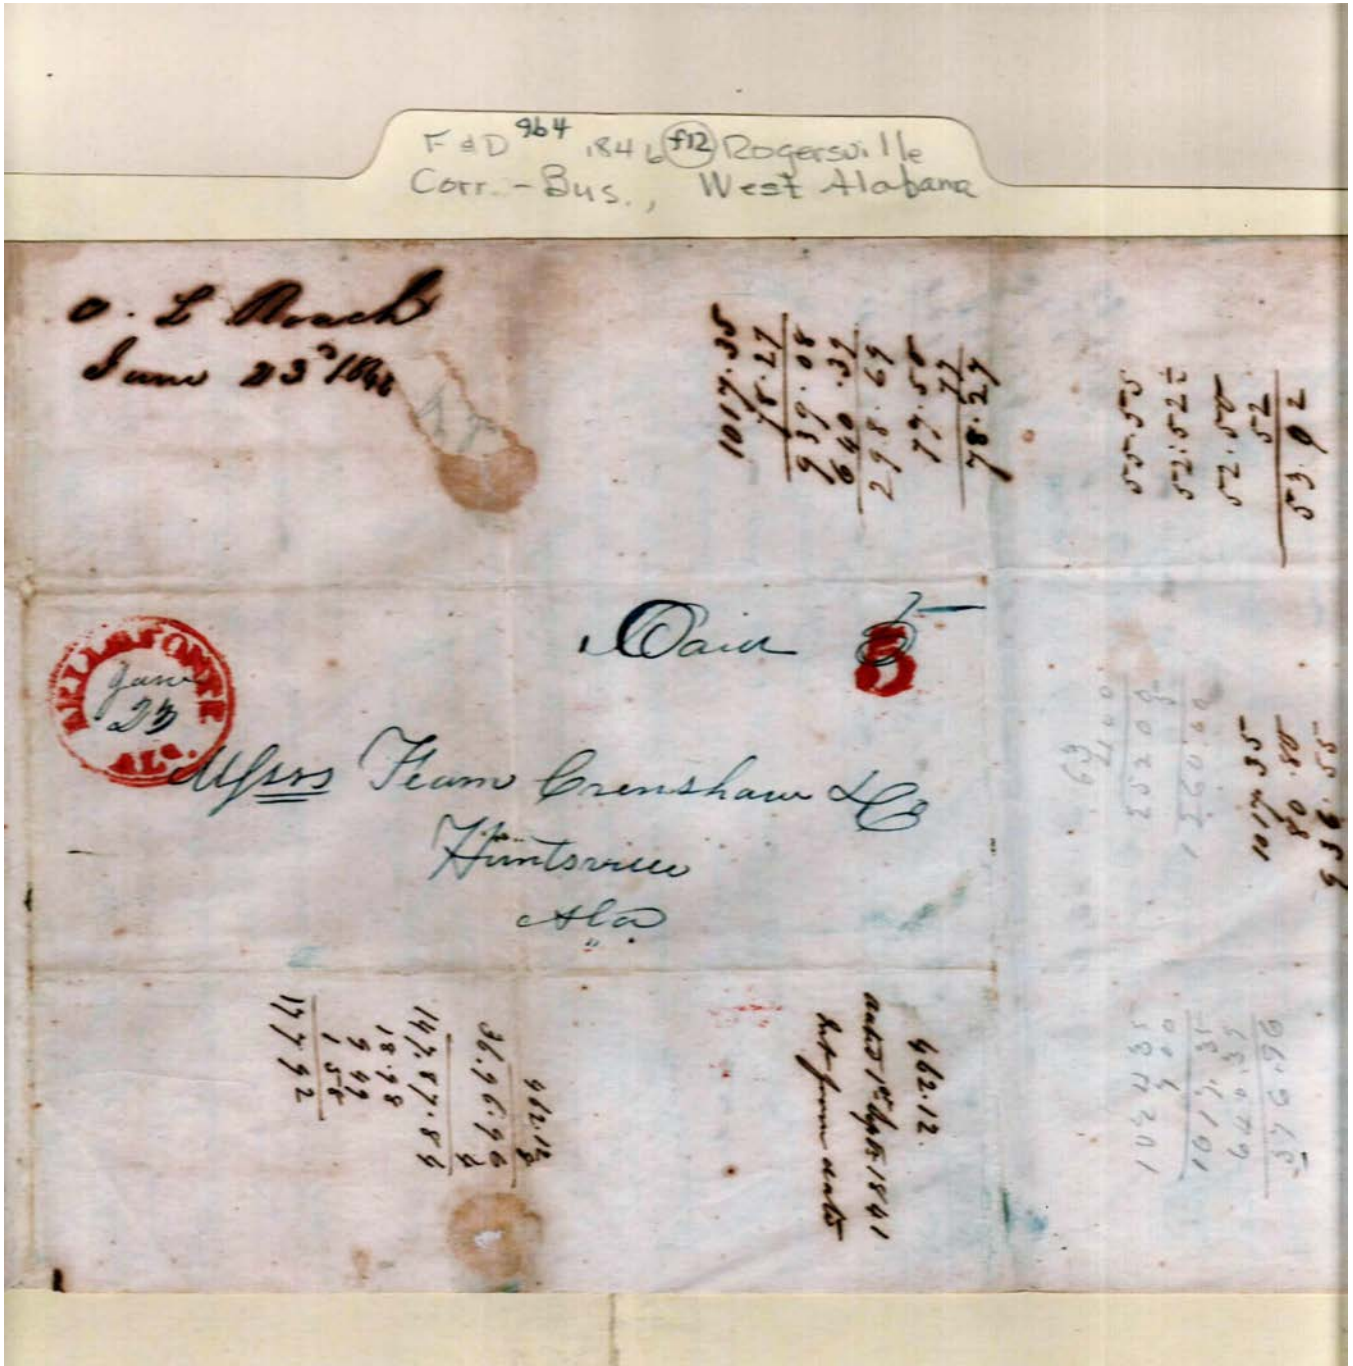 F & D 964 1846 f12 Rogersville
Corr. - Bus., West Alabama
O. L Roach
June 23d 1846
1017.35
78.27
939.08
640.39
298.69
77.50
77
78.27
55.55
52.52
52.50
52
53.02
Paid 5
5
BELLEFONTE
June
23
ALA.
Messrs Fearn Crenshaw & Co
Huntsville
Ala
63
2400
25200
1017.35
80.80
936.55
462.12
8
36.96.96
4
147.87.84
18.98
9 49
1 58
177.92
462.12.
1841
Int from date
1024.35
7 00
1017.35
640.39
376.96